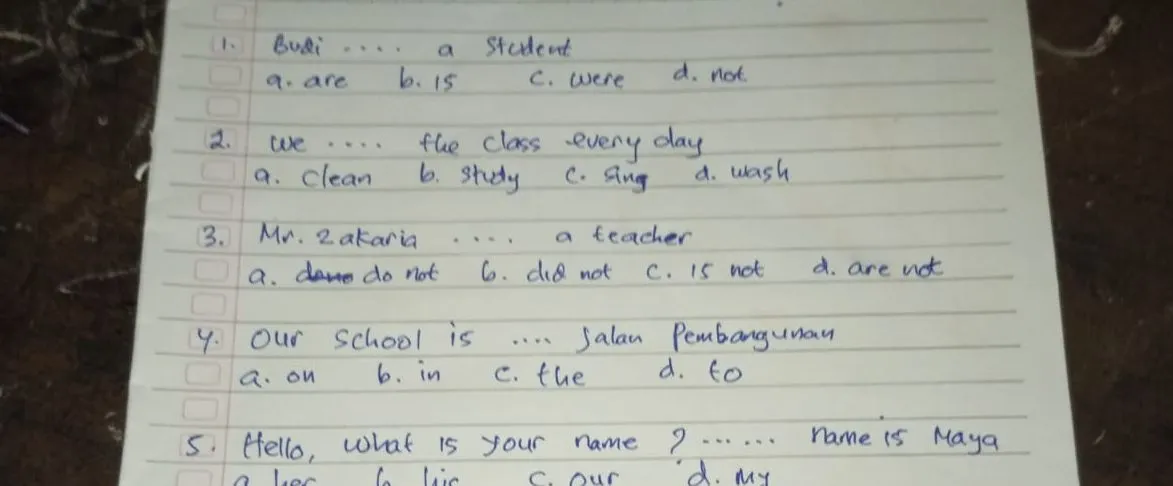 1. Budi .... a student
a. are b. is c. were d. not
2. we .... the class every day
a. clean b. study c. sing d. wash
3. Mr. Zakaria .... a teacher
a. do not b. did not c. is not d. are not
4. Our school is .... Jalan Pembangunan
a. on b. in c. the d. to
5. Hello, what is your name ? ...... name is Maya
a. her b. his c. our d. My